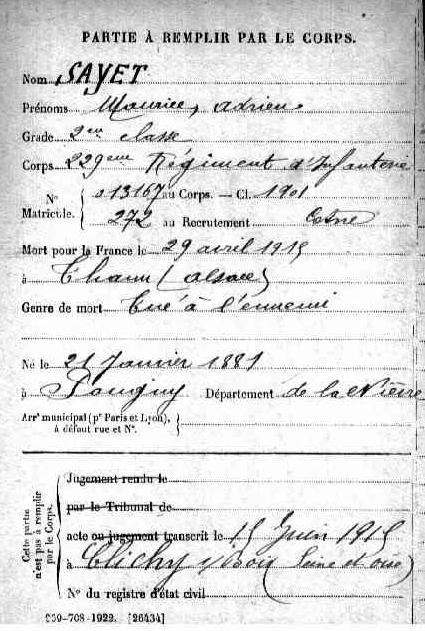 PARTIE À REMPLIR PAR LE CORPS.
Nom SAYET
Prénoms Maurice, Adrien
Grade 2eme classe
Corps 229eme Régiment d'Infanterie
N° Matricule. { 013167 au Corps. — Cl. 1901
272 au Recrutement Cosne
Mort pour la France le 29 avril 1915
à Thann (Alsace)
Genre de mort Tué à l'ennemi
Né le 21 Janvier 1881
à Pougny Département de la Nièvre
Arrt municipal (pr Paris et Lyon), à défaut rue et N°. }
Cette partie n'est pas à remplir par le Corps. {
Jugement rendu le
par le Tribunal de
acte ou jugement transcrit le 15 Juin 1915
à Clichy s/Bois (Seine et Oise)
N° du registre d'état civil
-708-1922. [26434]